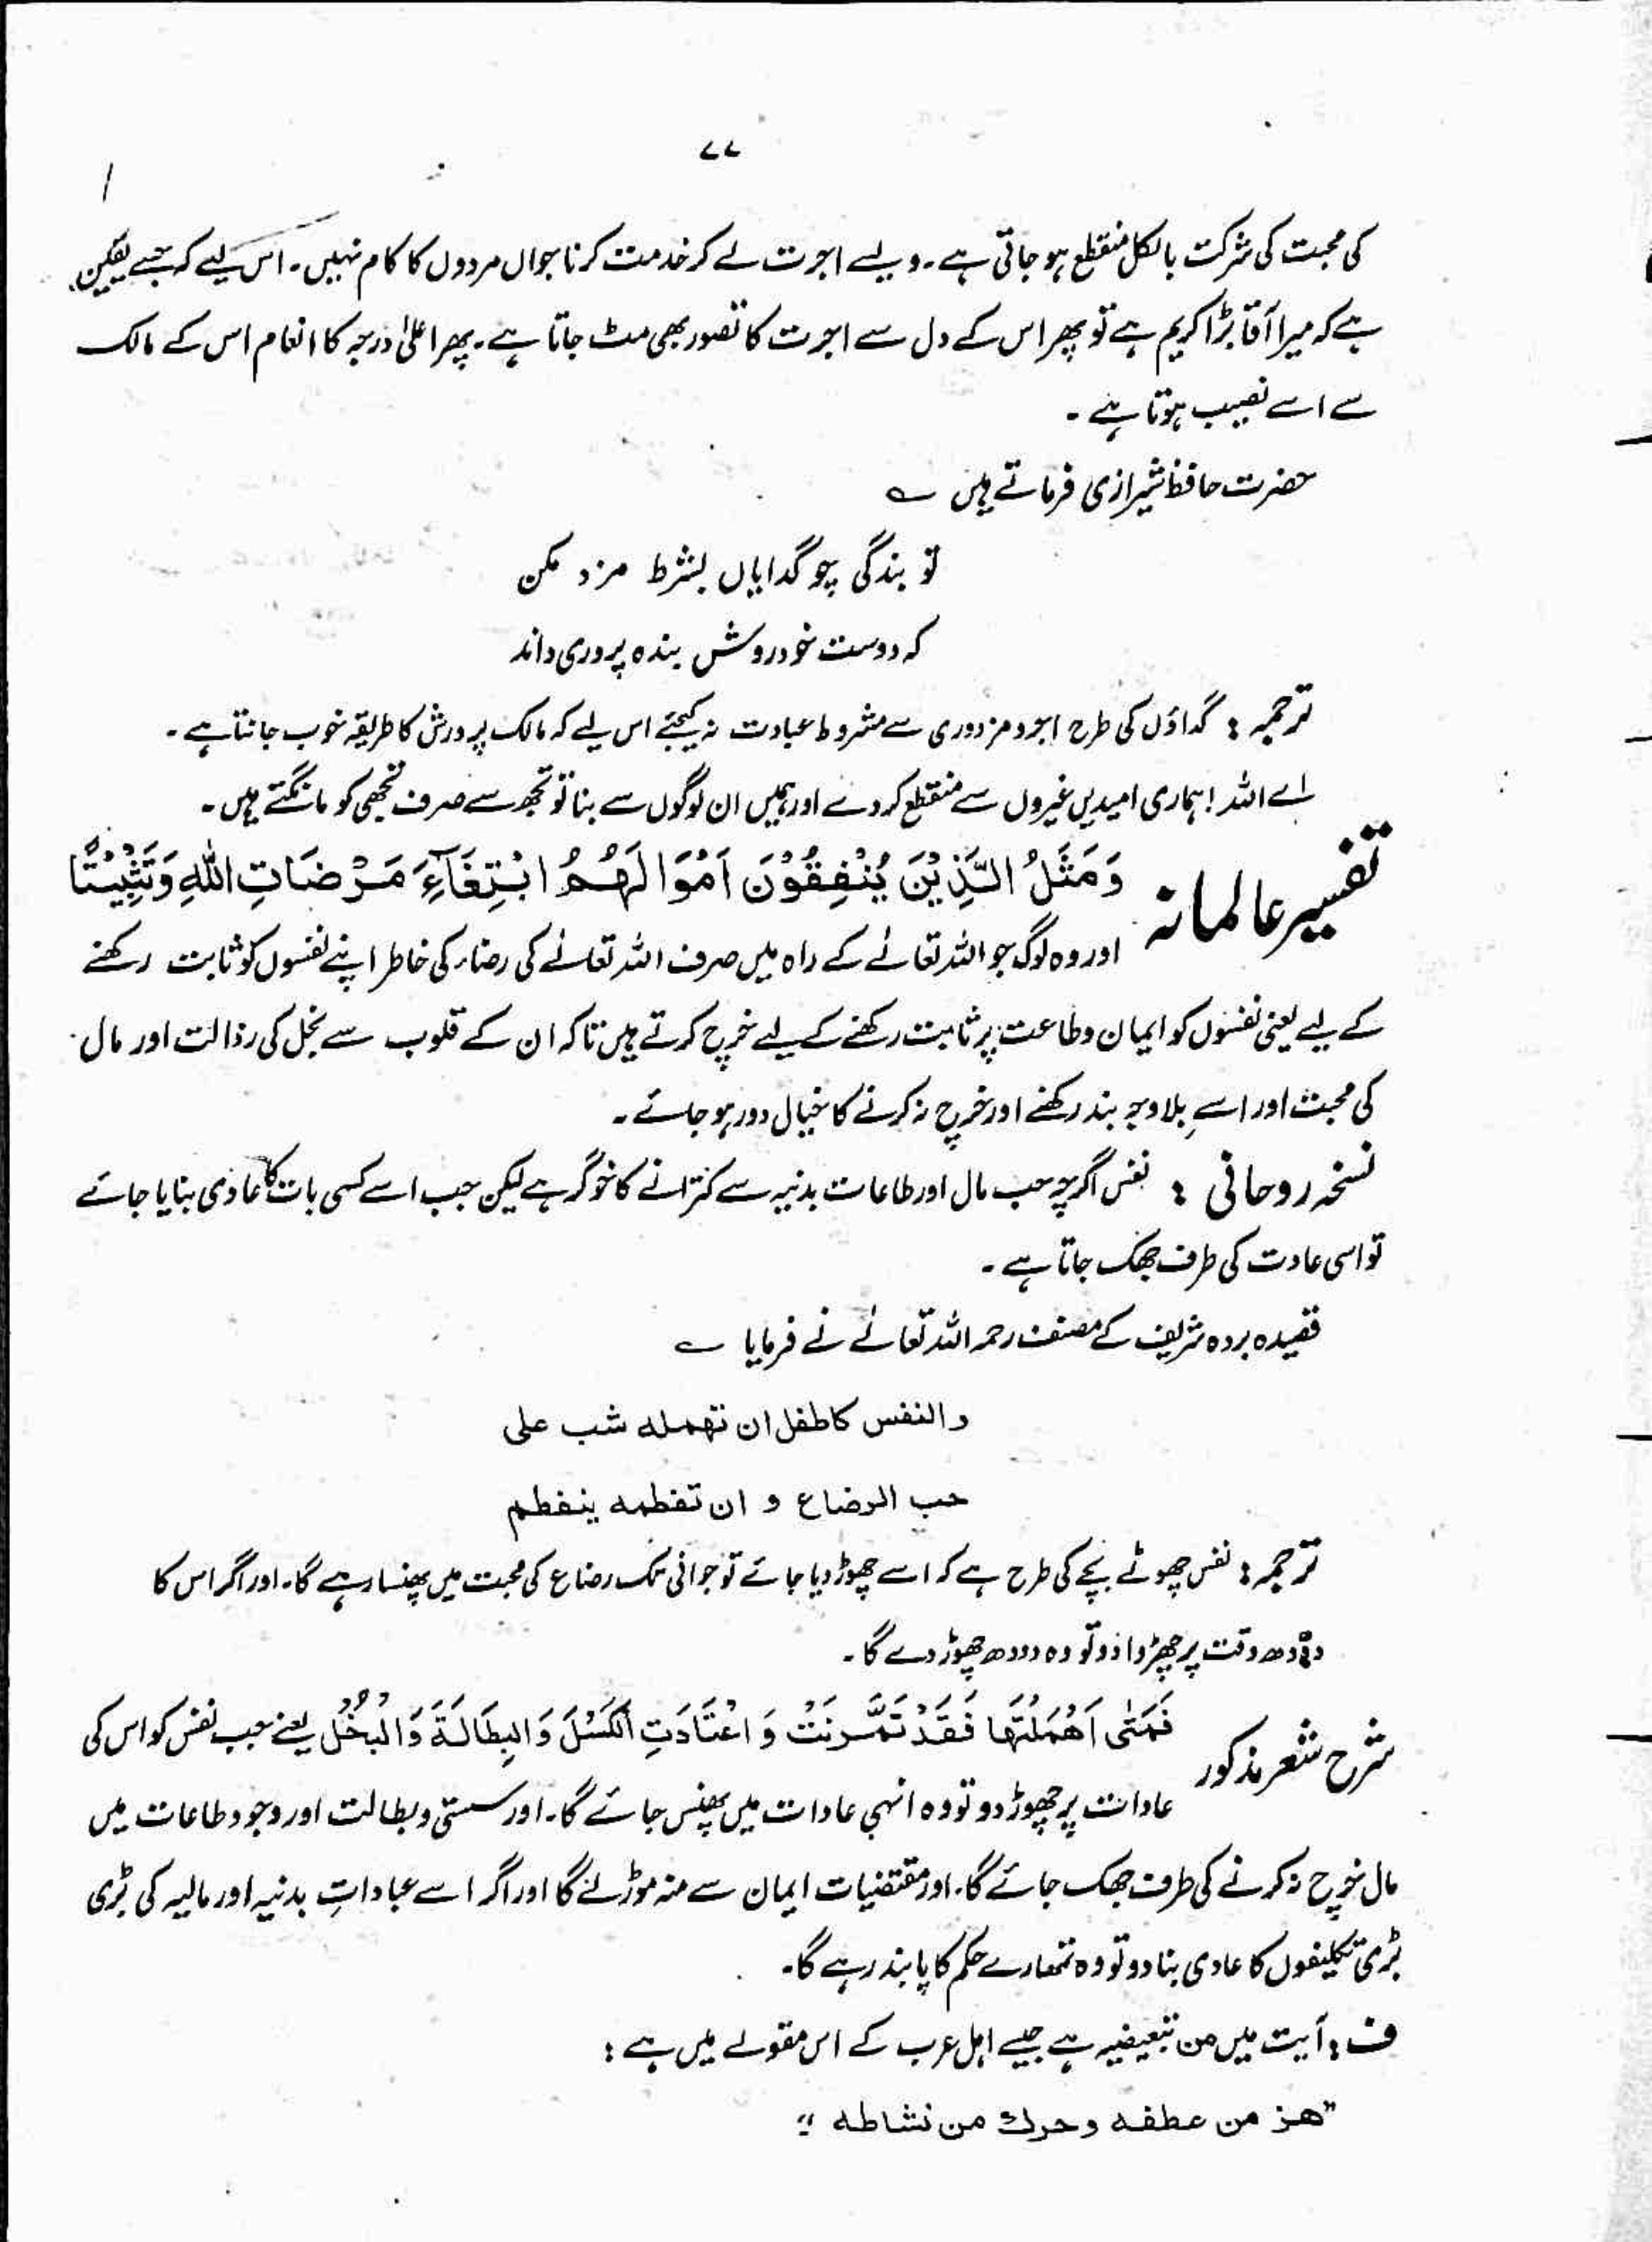 ۷۷
کی محبت کی شرکت بالکل منقطع ہو جاتی ہے۔ ویسے اجرت لے کر خدمت کرنا جواں مردوں کا کام نہیں۔ اس لیے کہ جسے یقین
ہے کہ میرا آقا بڑا کریم ہے تو پھر اس کے دل سے اجرت کا تصور بھی مٹ جاتا ہے۔ پھر اعلیٰ درجہ کا انعام اس کے مالک
سے اسے نصیب ہوتا ہے۔
حضرت حافظ شیرازی فرماتے ہیں ؎
تو بندگی چو گدایاں بشرط مزد مکن
کہ دوست خود روش بندہ پروری داند
ترجمہ : گداؤں کی طرح اجر و مزدوری سے مشروط عبادت نہ کیجئے اس لیے کہ مالک پرورش کا طریقہ خوب جانتا ہے۔
اے اللہ ! ہماری امیدیں غیروں سے منقطع کر دے اور ہمیں ان لوگوں سے بنا تو تجھ سے صرف تجھی کو مانگتے ہیں۔
تفسیر عالمانہ وَمَثَلُ الَّذِیْنَ یُنْفِقُوْنَ اَمْوَالَھُمُ ابْتِغَآءَ مَرْضَاتِ اللّٰہِ وَتَثْبِیْتًا
اور وہ لوگ جو اللہ تعالےٰ کے راہ میں صرف اللہ تعالےٰ کی رضاء کی خاطر اپنے نفسوں کو ثابت رکھنے
کے لیے یعنی نفسوں کو ایمان و طاعت پر ثابت رکھنے کے لیے خرچ کرتے ہیں تاکہ ان کے قلوب سے بخل کی رذالت اور مال
کی محبت اور اسے بلا وجہ بند رکھنے اور خرچ نہ کرنے کا خیال دور ہو جائے۔
نسخہ روحانی : نفس اگرچہ حب مال اور طاعات بدنیہ سے کترانے کا خوگر ہے لیکن جب اسے کسی بات کا عادی بنایا جائے
تو اسی عادت کی طرف جھک جاتا ہے۔
قصیدہ بردہ شریف کے مصنف رحمہ اللہ تعالےٰ نے فرمایا ؎
والنفس کاطفل ان تھملہ شب علی
حب الرضاع و ان تفطمہ ینفطم
ترجمہ : نفس چھوٹے بچے کی طرح ہے کہ اسے چھوڑ دیا جائے تو جوانی تک رضاع کی محبت میں پھنسا رہے گا۔ اور اگر اس کا
دودھ وقت پر چھڑوا دو تو وہ دودھ چھوڑ دے گا۔
شرح شعر مذکور فَمَتٰی اَھْمَلْتَھَا فَقَدْ تَمَّرنَتْ وَ اعْتَادَتِ الْکَسْلَ وَ الْبِطَالَۃَ وَ الْبُخْلَ یعنے جب نفس کو اس کی
عادات پر چھوڑ دو تو وہ انہی عادات میں پھنس جائے گا۔ اور سستی و بطالت اور وجود طاعات میں
مال خرچ نہ کرنے کی طرف جھک جائے گا۔ اور مقتضیات ایمان سے منہ موڑ لے گا اور اگر اسے عباداتِ بدنیہ اور مالیہ کی بڑی
بڑی تکلیفوں کا عادی بنا دو تو وہ تمھارے حکم کا پابند رہے گا۔
ف : آیت میں من تبعیضیہ ہے جیسے اہل عرب کے اس مقولے میں ہے :
"ھز من عطفہ و حرک من نشاطہ"